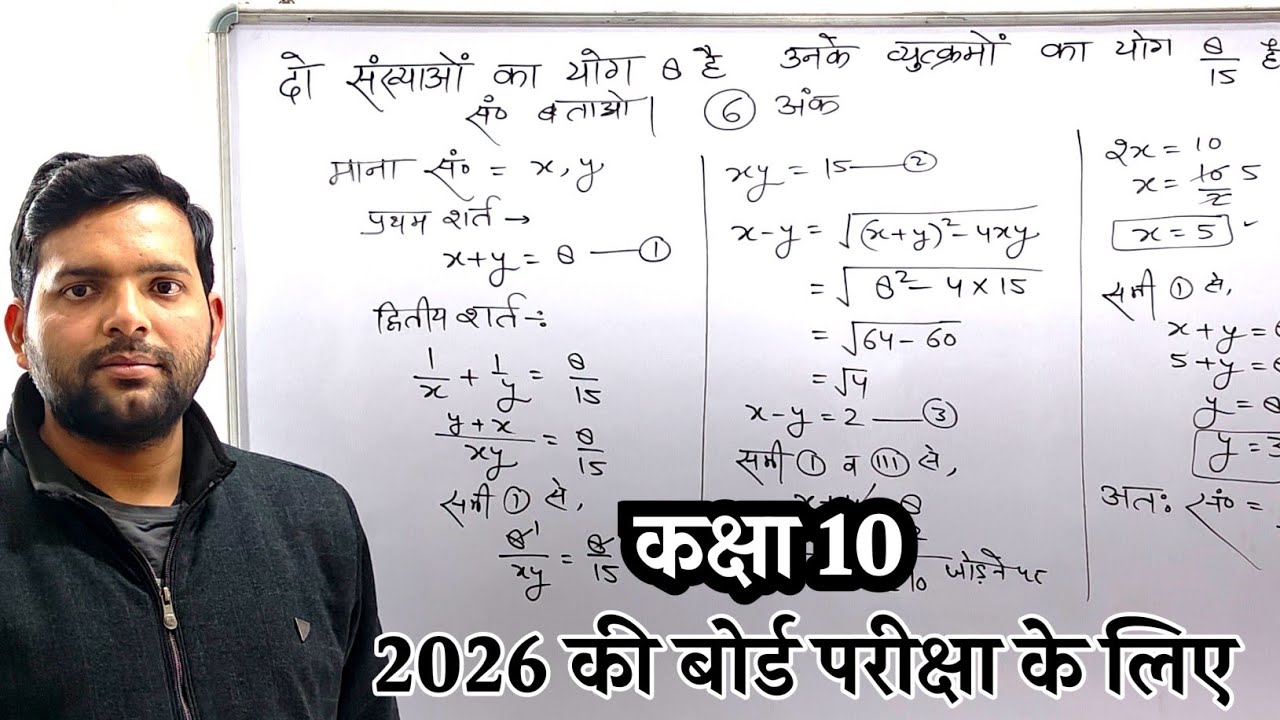 दो संख्याओं का योग 8 है उनके व्युत्क्रमों का योग 8/15 है
सं० बताओ। ⑥ अंक
माना सं० = x, y
प्रथम शर्त →
x+y = 8 —①
द्वितीय शर्त -:
1/x + 1/y = 8/15
y+x/xy = 8/15
समी ① से,
8¹/xy = 8/15
xy = 15 —②
x-y = √(x+y)²-4xy
= √8²-4×15
= √64-60
= √4
x-y = 2 —③
समी ① व ⅲ से,
जोड़ने पर
2x = 10
x = 10/2 5
x = 5
समी ① से,
x+y =
5+y =
y = 8
y = 3
अतः सं० =
कक्षा 10
2026 की बोर्ड परीक्षा के लिए